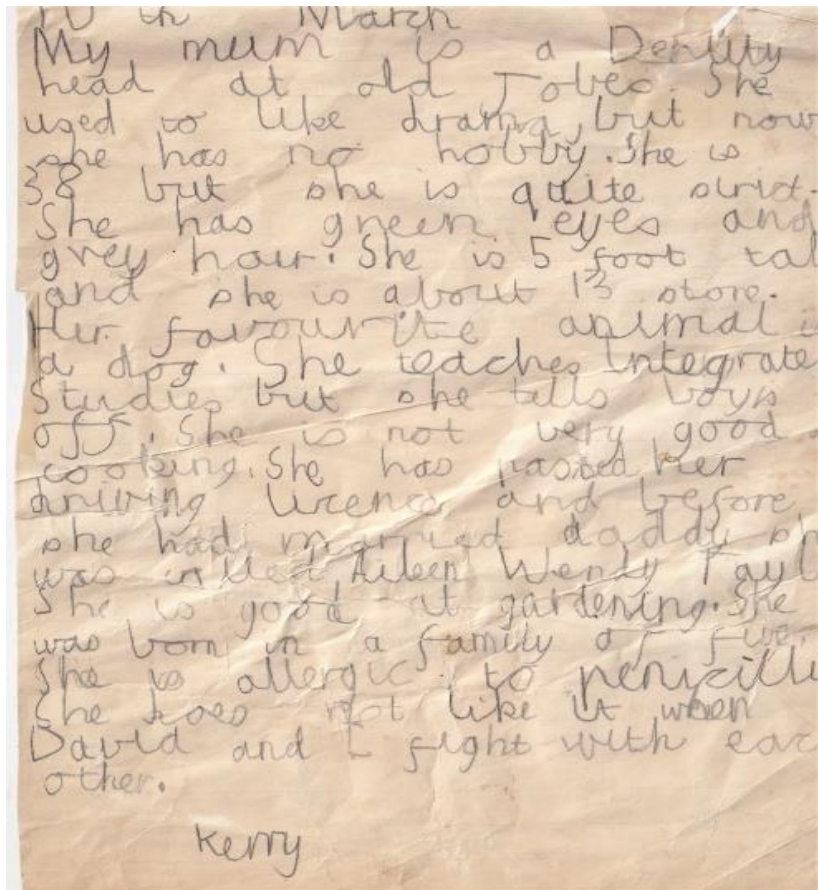 10 th March
My mum is a Deputy
head at old Jobes. She
used to like drama, but now
she has no hobby. She is
38 but she is quite strict.
She has green eyes and
grey hair. She is 5 foot tal
and she is about 13 stone.
Her favourite animal i
a dog. She teaches Integrate
Studies but she tells boys
off. She is not very good
cooking. She has passed her
driving licence and before
she had married daddy sh
was called Aileen Wendy Tayl
She is good at gardening. She
was born in a family of five.
She is allergic to penicilli
She does not like it when
David and I fight with eac
other.
Kerry